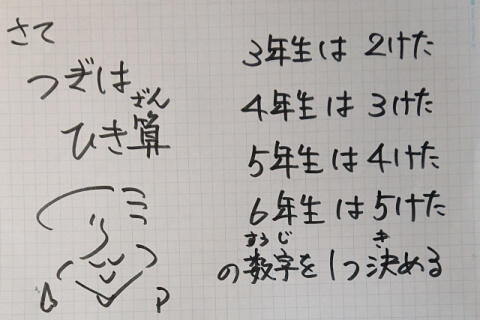 さて
つぎは
ひき算
ざん
3年生は 2けた
4年生は 3けた
5年生は 4けた
6年生は 5けた
の数字を1つ決める
すうじ
き